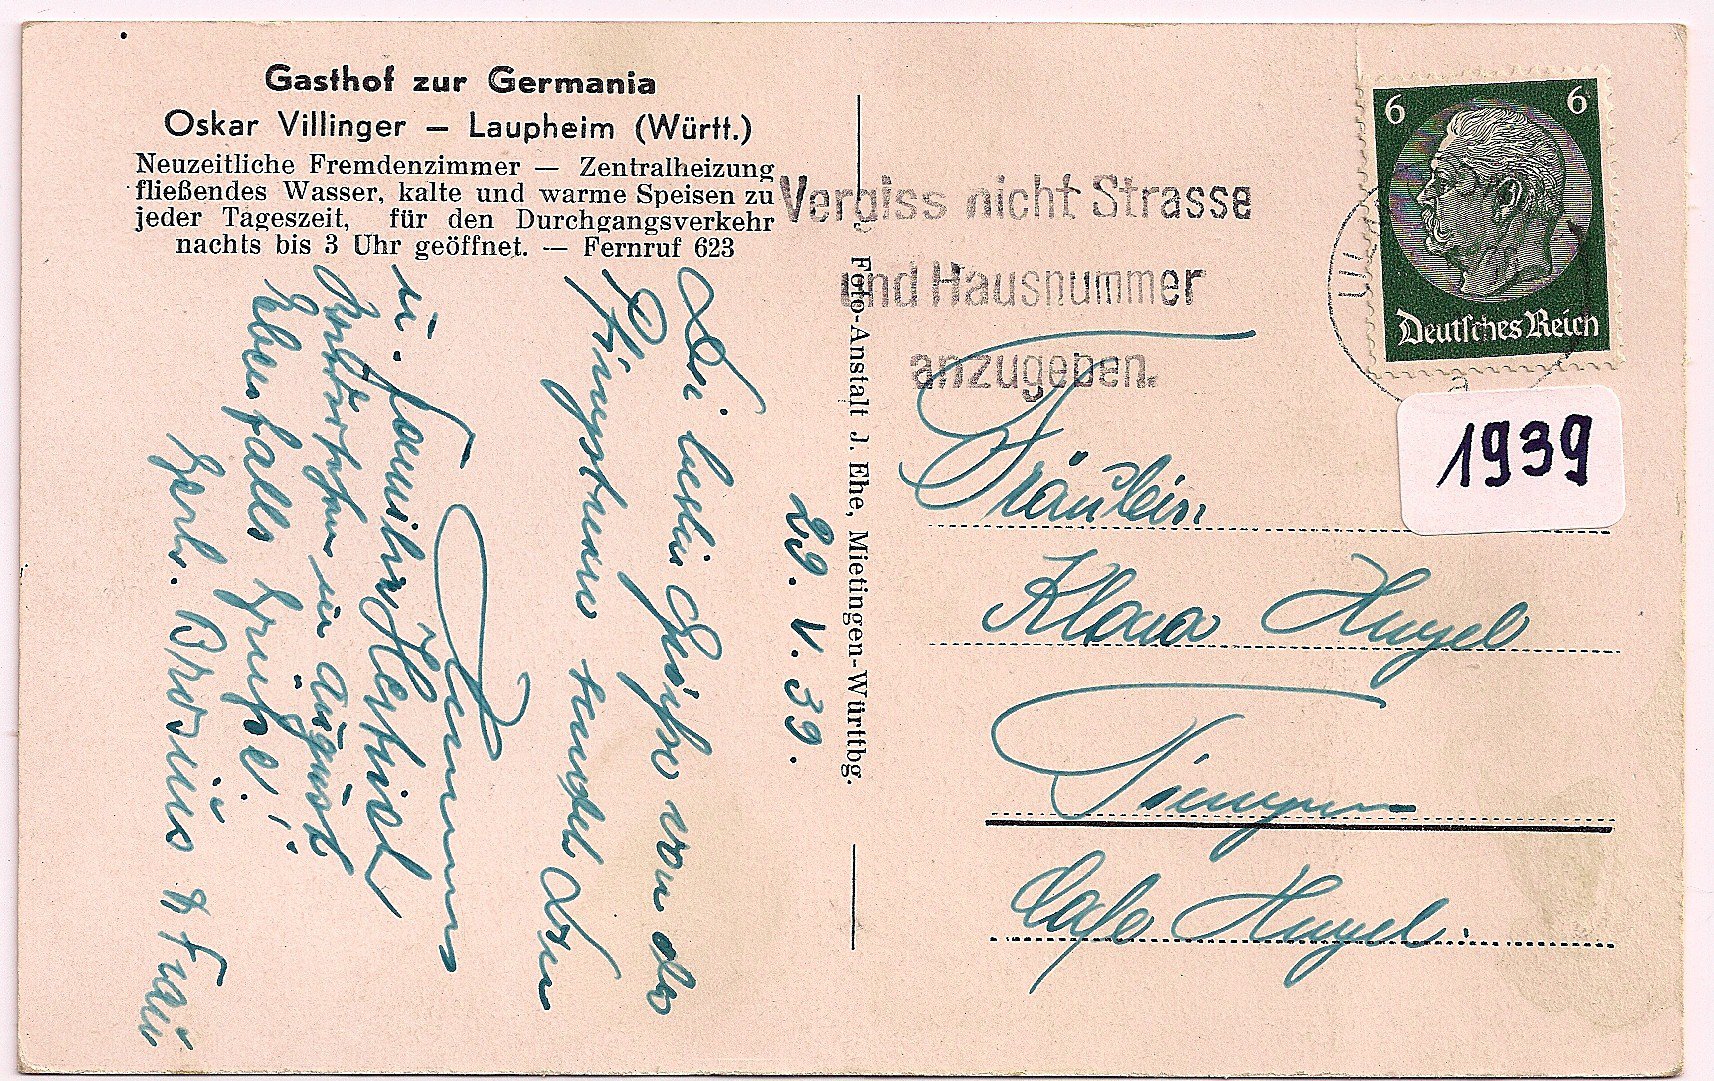 Gasthof zur Germania
Oskar Villinger — Laupheim (Württ.)
Neuzeitliche Fremdenzimmer — Zentralheizung
fließendes Wasser, kalte und warme Speisen zu
jeder Tageszeit, für den Durchgangsverkehr
nachts bis 3 Uhr geöffnet. — Fernruf 623
29. V. 39.
Die besten Grüße von der
Pfingst
u. Familie
in August
Ebenfalls Grüße!
u Frau
Foto-Anstalt J. Ehe, Mietingen-Württbg.
Vergiss nicht Strasse
und Hausnummer
anzugeben.
6 6
Deutsches Reich
1939
Fräulein
Klara Hugel
Cafe Hugel.